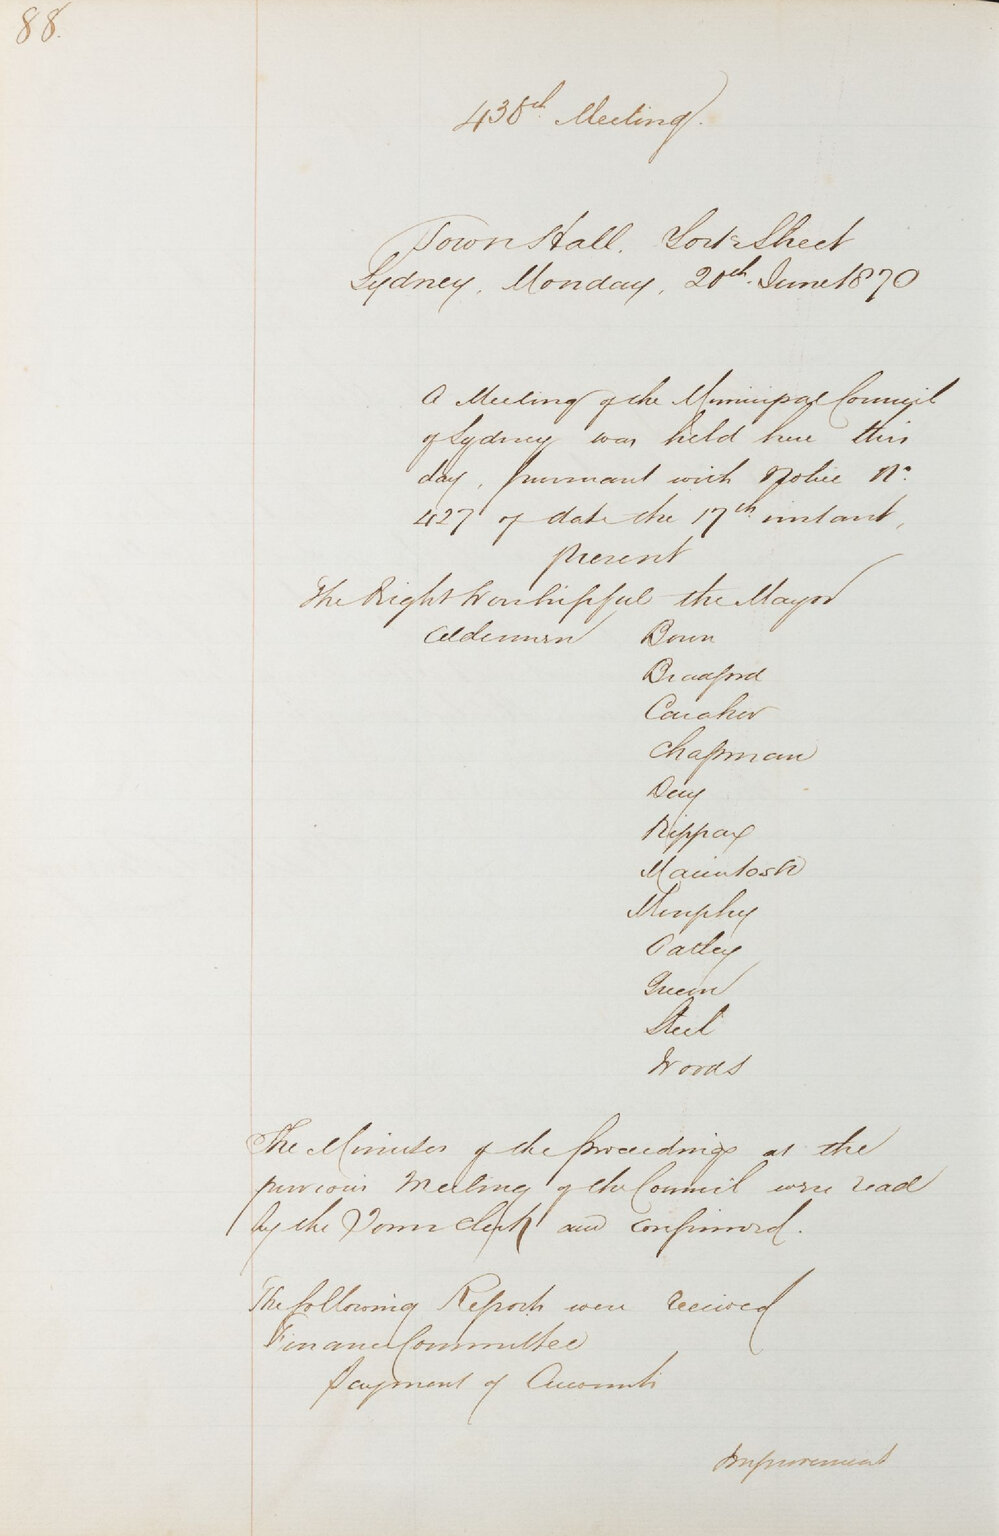 88.
438th Meeting.
Town Hall. York Street
Sydney, Monday, 20th June 1870
A Meeting of the Municipal Council
of Sydney was held here this
day, pursuant with Notice No.
427 of date the 17th instant,
present
The Right Worshipful the Mayor
Aldermen Bown
Bradford
Caraher
Chapman
Day
Kippax
Macintosh
Murphy
Oatley
Green
Steel
Woods
The Minutes of the proceedings at the
previous Meeting of the Council were read
by the Town Clerk and confirmed.
The following Reports were received
Finance Committee
Payment of Accounts
Improvement